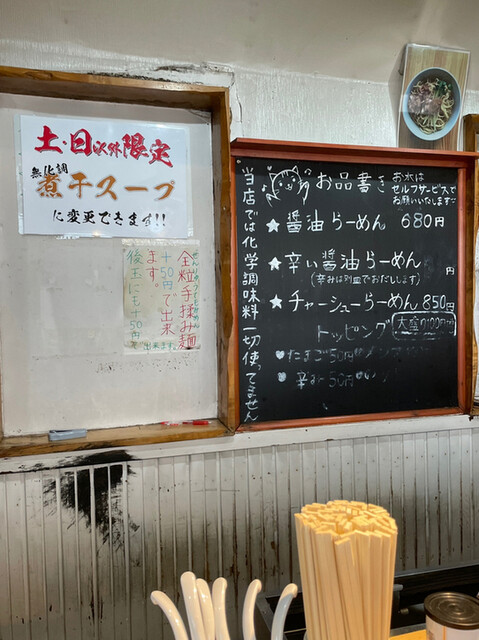 土・日以外限定
無化調
煮干スープ
に変更できます!!
ぜんりゅうてもみめん
全粒手揉み麺
+50円で出来
ます。
後玉にも+50円で
出来ます。
お品書き
お水は
セルフサービスで
お願いいたします
当店では化学調味料一切使ってません
★醤油らーめん 680円
★辛い醤油らーめん 円
(辛みは別皿でおだしします)
★チャーシューらーめん 850円
トッピング
大盛り100円
♥たまご50円
♥辛み50円